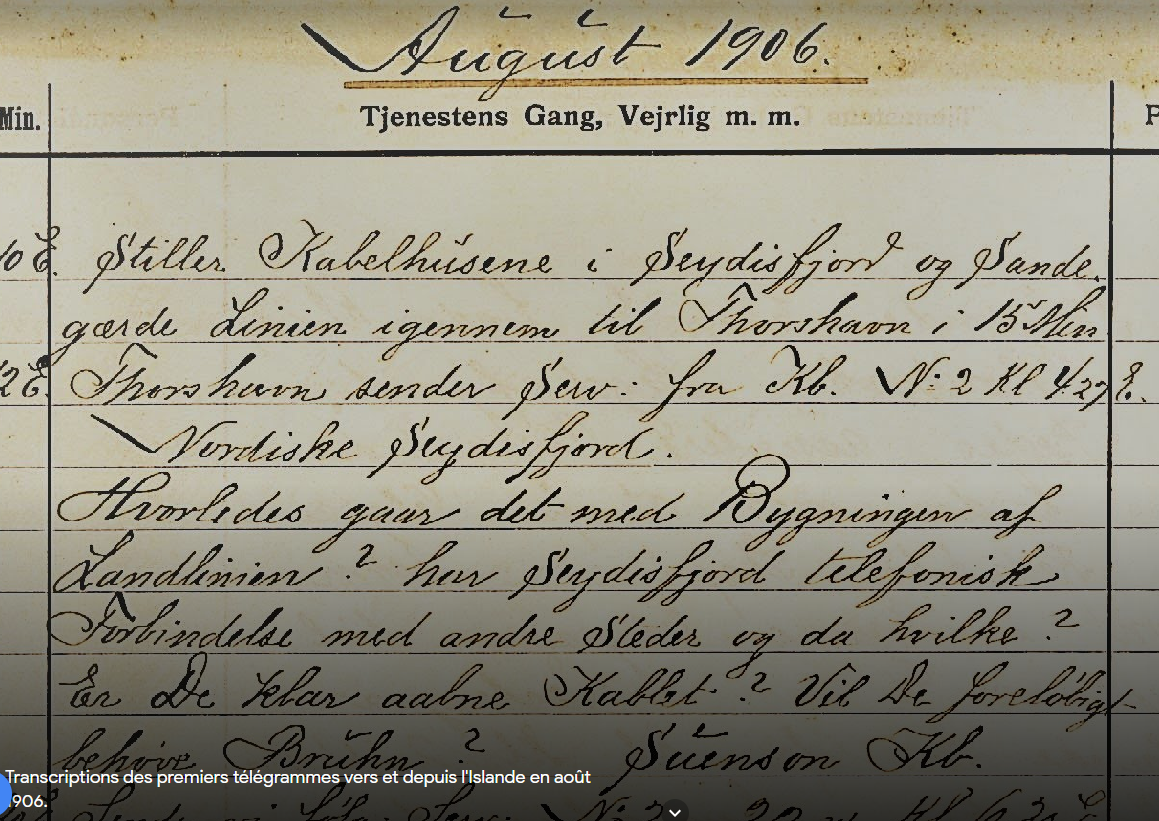 August 1906.
Min. Tjenestens Gang, Vejrlig m. m. P
10 E. Stiller Kabelhusene i Seydisfjord og Sande-
gærde Linien igennem til Thorshavn i 15 Min
12 E. Thorshavn sender Serv: fra Kb. No: 2 Kl 4/27 E.
Nordiske Seydisfjord.
Hvorledes gaar det med Bygningen af
Landlinien ? har Seydisfjord telefonisk
Forbindelse med andre Steder og da hvilke ?
Er De klar aabne Kablet ? Vil De foreløbigt
behøve Bruhn ? Suenson Kb.
Transcriptions des premiers télégrammes vers et depuis l'Islande en août
1906.